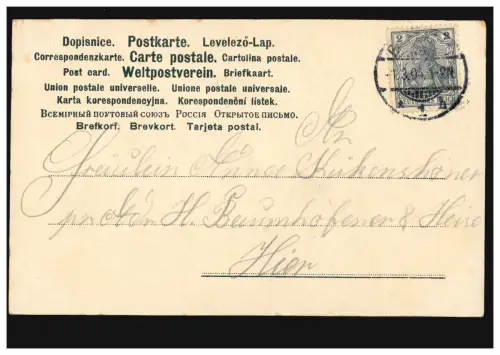 Dopisnice. Postkarte. Levelező-Lap.
Correspondenzkarte. Carte postale. Cartolina postale.
Post card. Weltpostverein. Briefkaart.
Union postale universelle. Unione postale universale.
Karta korespondencyjna. Korespondenční listek.
Всемірный поутовый союзъ Россія Открытое письмо.
Brefkort. Brevkort. Tarjeta postal.
2 2
An
Fräulein Anna Kükenshöner
pr Adr H. Baumhöfener & Heise
Hier